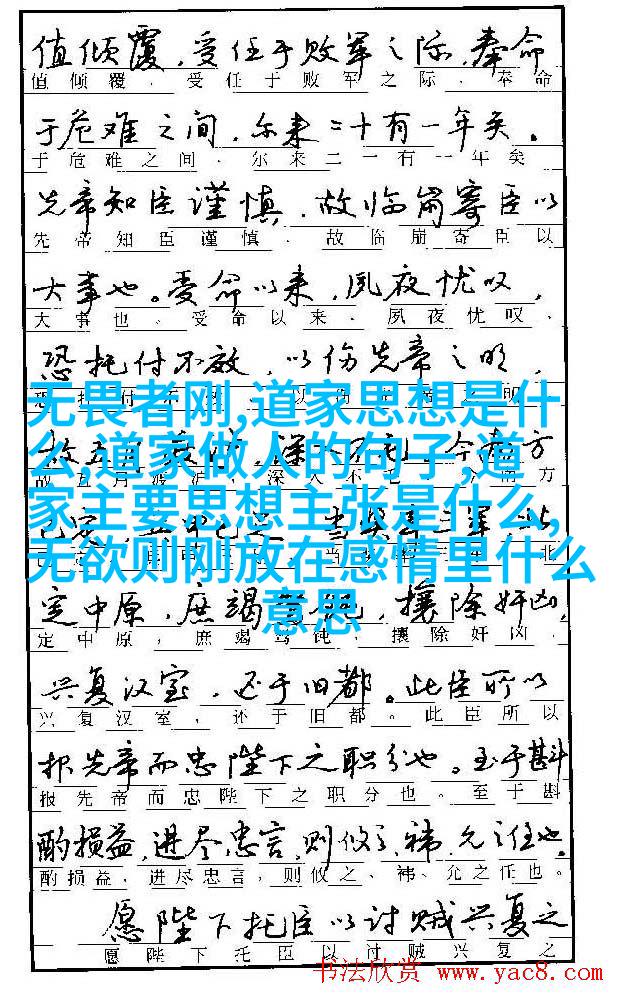 值倾覆，受任于败军之际，奉命
值倾覆，受任于败军之际，奉命
于危难之间，尔来二十有一年矣。
于危难之间，尔来二一有一年矣
先帝知臣谨慎，故临崩寄臣以
先帝知臣谨慎，故临崩寄臣以
大事也。受命以来，夙夜忧叹，
大事也。受命以来，夙夜忧叹，
恐托付不效，以伤先帝之明，
无畏者刚,道家思想是什
么,道家做人的句子,道
家主要思想主张是什么,
无欲则刚放在感情里什么
意思
定中原，庶竭驽钝，攘除奸凶，
定中原，庶竭驽钝，攘除奸凶，
兴复汉室，还于旧都。此臣所以
兴复汉室，还于旧都。此臣所以
报先帝而忠陛下之职分也。至于斟
报先帝而忠陛下之职分也。至于斟
酌损益，进尽忠言，则攸之、祎、允之任也。
酌损益，进尽忠言，则攸之、祎、允之任也。
愿陛下托臣以讨贼兴复之
愿陛下托臣以讨贼兴复之
书法欣赏 www.yac8.com